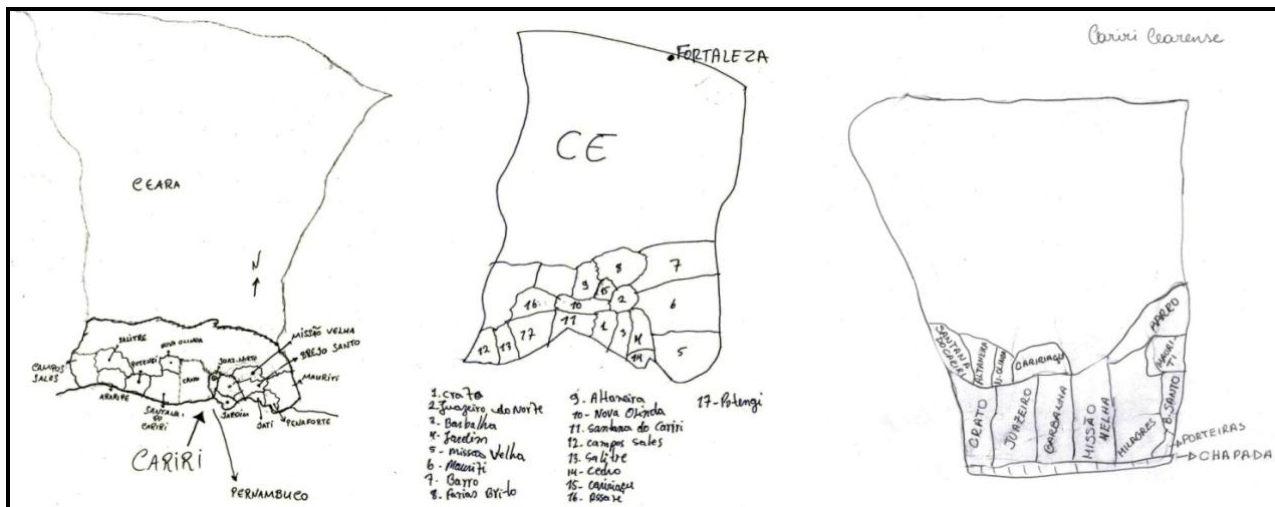 CEARA
N
SALITRE
NOVA OLINDA
JUAZ. NORTE
MISSÃO VELHA
BREJO SANTO
CAMPOS SALES
POTENGI
CRATO
MAURITI
ARARIPE
SANTANA DO CARIRI
JARDIM
JATÍ
PENAFORTE
CARIRI
PERNAMBUCO
FORTALEZA
CE
8
7
9
15
2
16
10
6
11
1
3
4
17
12
13
14
5
1. Crato
2. Juazeiro do Norte
3. Barbalha
4. Jardim
5 - Missão Velha
6 - Mauriti
7 - Barro
8. Farias Brito
9. Altaneira
10 - Nova Olinda
11. Santana do Cariri
12. Campos Sales
13. Salitre
14 - Cedro
15 - Caririaçu
16. Assaré
17 - Potengi
Cariri Cearense
BARRO
SANTANA DO CARIRI
ALTANEIRA
N. OLINDA
CARIRIAÇU
MAURITI
CRATO
JUAZEIRO
BARBALHA
MISSÃO VELHA
MILAGRES
B. SANTO
PORTEIRAS
CHAPADA